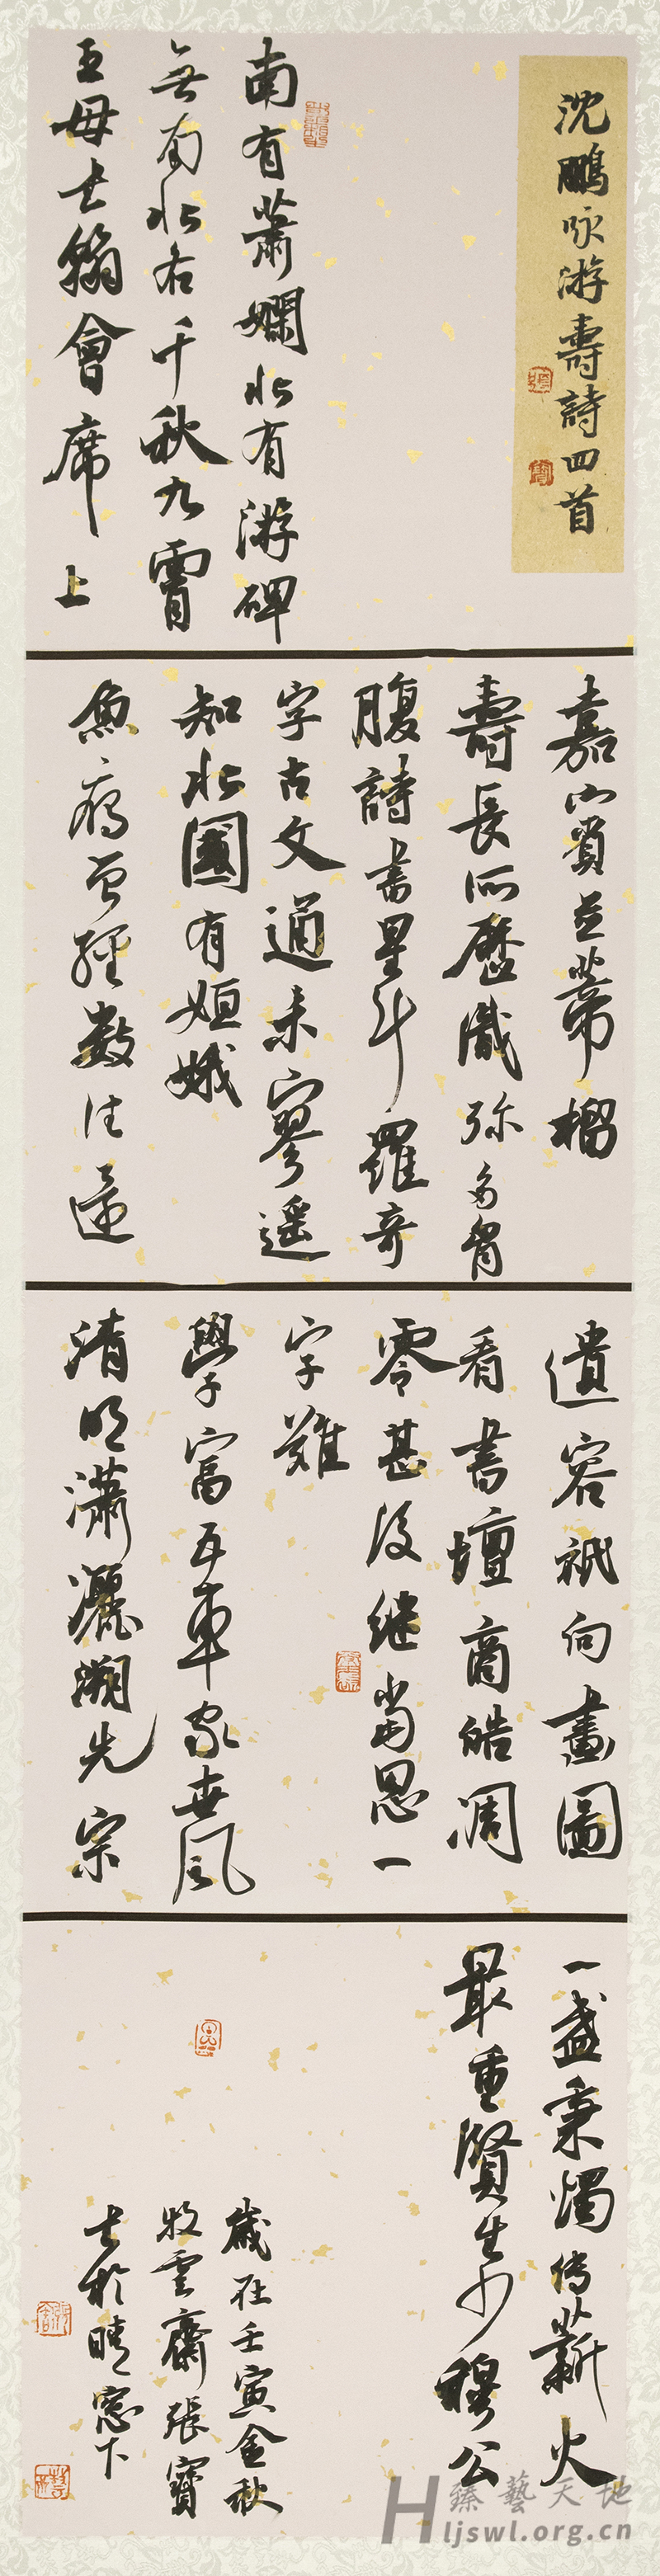 沈鵬咏游壽詩四首
南有蕭嫻北有游碑
無南北右千秋九霄
王母書翰會席上
嘉賓並蒂榴
壽長所歷識弥多胷
腹詩書星斗羅奇
字古文通未寥遥
知北國有姮娥
魚 曾經數往還
遺容祇向畫圖
看書壇商皓凋
零甚後繼當思一
字難
學富五車家世風
清明瀟灑溯先宗
一盞秉燭傳薪火
最重賢生少穆公
歲在壬寅金秋
牧雲齋張寶
書於晴窓下
臻藝天地
Hljswl.org.cn